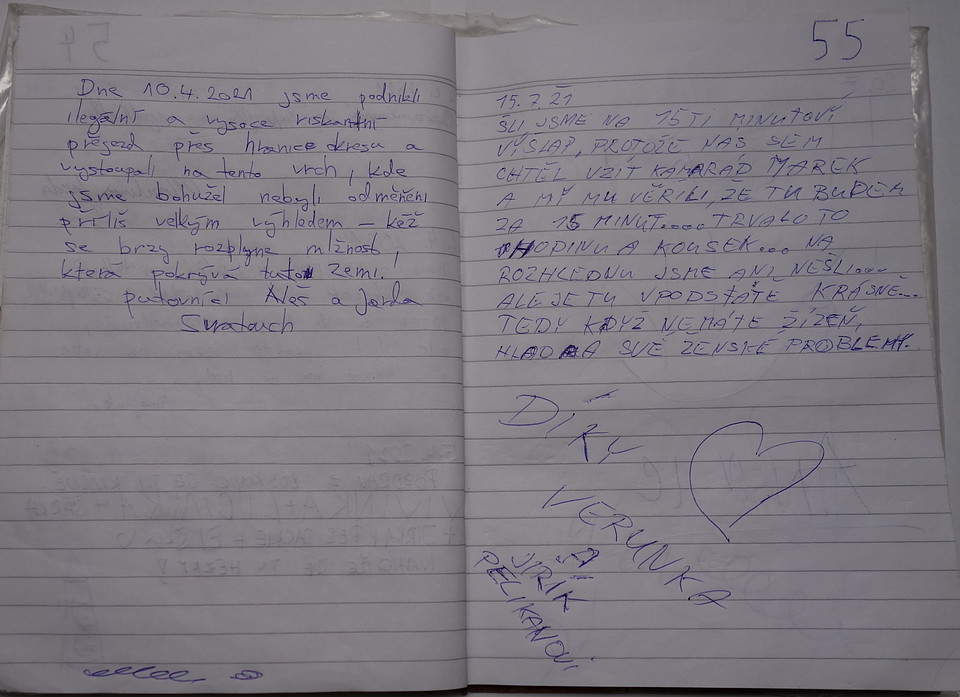 Dne 10.4.2021 jsme podnikli
ilegální a vysoce riskantní
přejezd přes hranice okresu a
vystoupali na tento vrch, kde
jsme bohužel nebyli odměněni
příliš velkým výhledem – kéž
se brzy rozplyne mlžnost,
která pokrývá tuto zemi.
putovníci Aleš a Jarda
55
15.7.21
ŠLI JSME NA 15TI MINUTOVÍ
VÝŠLAP, PROTOŽE NÁS SEM
CHTĚL VZÍT KAMARÁD MAREK
A MY MU VĚŘILI, ŽE TU BUDEM
ZA 15 MINUT.... TRVALO TO
HODINU A KOUSEK... NA
ROZHLEDNU JSME ANI NEŠLI...
ALE JE TU VPODSTATĚ KRÁSNĚ...
TEDY KDYŽ NEMÁTE ŽÍZEŇ,
HLAD A SVÉ ŽENSKÉ PROBLEMY.
DÍKY
VERUNKA
A
JIŘÍK
PELIKÁNOVI